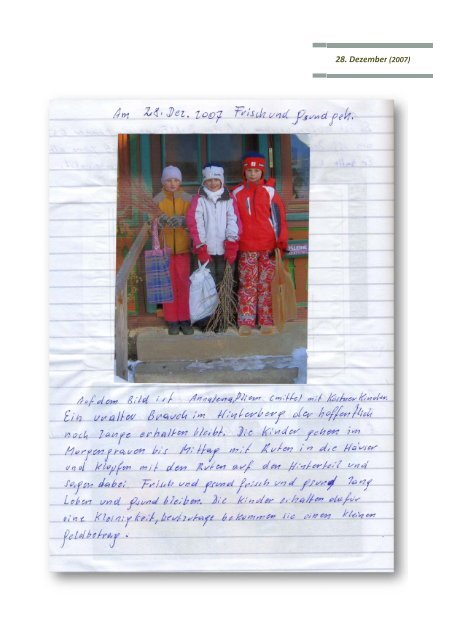 28. Dezember (2007)
Am 28. Dez. 2007 Frisch und gsund geh.
Auf dem Bild ist Annalena (mitte) mit Kindern
Ein uralter Brauch im Hinterberg der hoffentlich
noch lange erhalten bleibt. Die Kinder gehen im
Morgengrauen bis Mittag mit Ruten in die Häuser
und klopfen mit den Ruten auf den Hinterteil und
sagen dabei. Frisch und gsund frisch und gsund lang
Leben und gsund bleiben. Die Kinder erhalten dafür
eine Kleinigkeit, heutzutage bekommen sie einen kleinen
Geldbetrag.